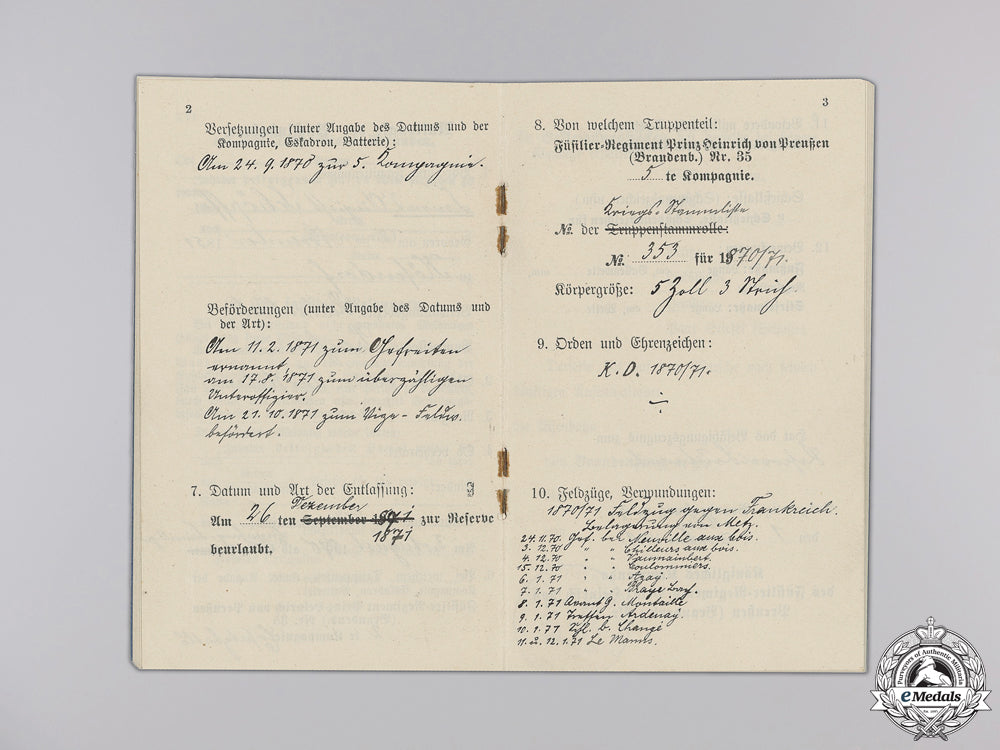 2
Versetzungen (unter Angabe des Datums und der
Kompagnie, Eskadron, Batterie):
Am 24. 9. 1870 zur 5. Kompagnie.
Beförderungen (unter Angabe des Datums und
der Art):
Am 11. 2. 1871 zum Gefreiten
ernannt,
am 17. 8. 1871 zum überzähligen
Unteroffizier.
Am 21. 10. 1871 zum Vize-Feldw.
befördert.
7. Datum und Art der Entlassung:
Dezember
Am 26 ten September zur Reserve
1871
beurlaubt.
3
8. Von welchem Truppenteil:
Füsilier-Regiment Prinz Heinrich von Preußen
(Brandenb.) Nr. 35
5 te Kompagnie.
Kriegs-Stammliste
No. der Truppenstammrolle:
No. 353 für 1870/71.
Körpergröße: 5 Zoll 3 Strich.
9. Orden und Ehrenzeichen:
K. D. 1870/71.
10. Feldzüge, Verwundungen:
1870/71 Feldzug gegen Frankreich.
Belagerung von Metz.
24. 11. 70 Gef. bei Neuville aux bois.
3. 12. 70 " " Chilleurs aux bois.
4. 12. 70 " " Vaumainbert.
15. 12. 70 " " Coulommiers.
6. 1. 71 " " Azay.
7. 1. 71 " "
8. 1. 71 Avant G. Montaille
9. 1. 71 Treffen Ardenay.
10. 1. 71 b. Changé
11. u. 12. 1. 71 Le Mans.
Purveyors of Authentic Militaria
eMedals